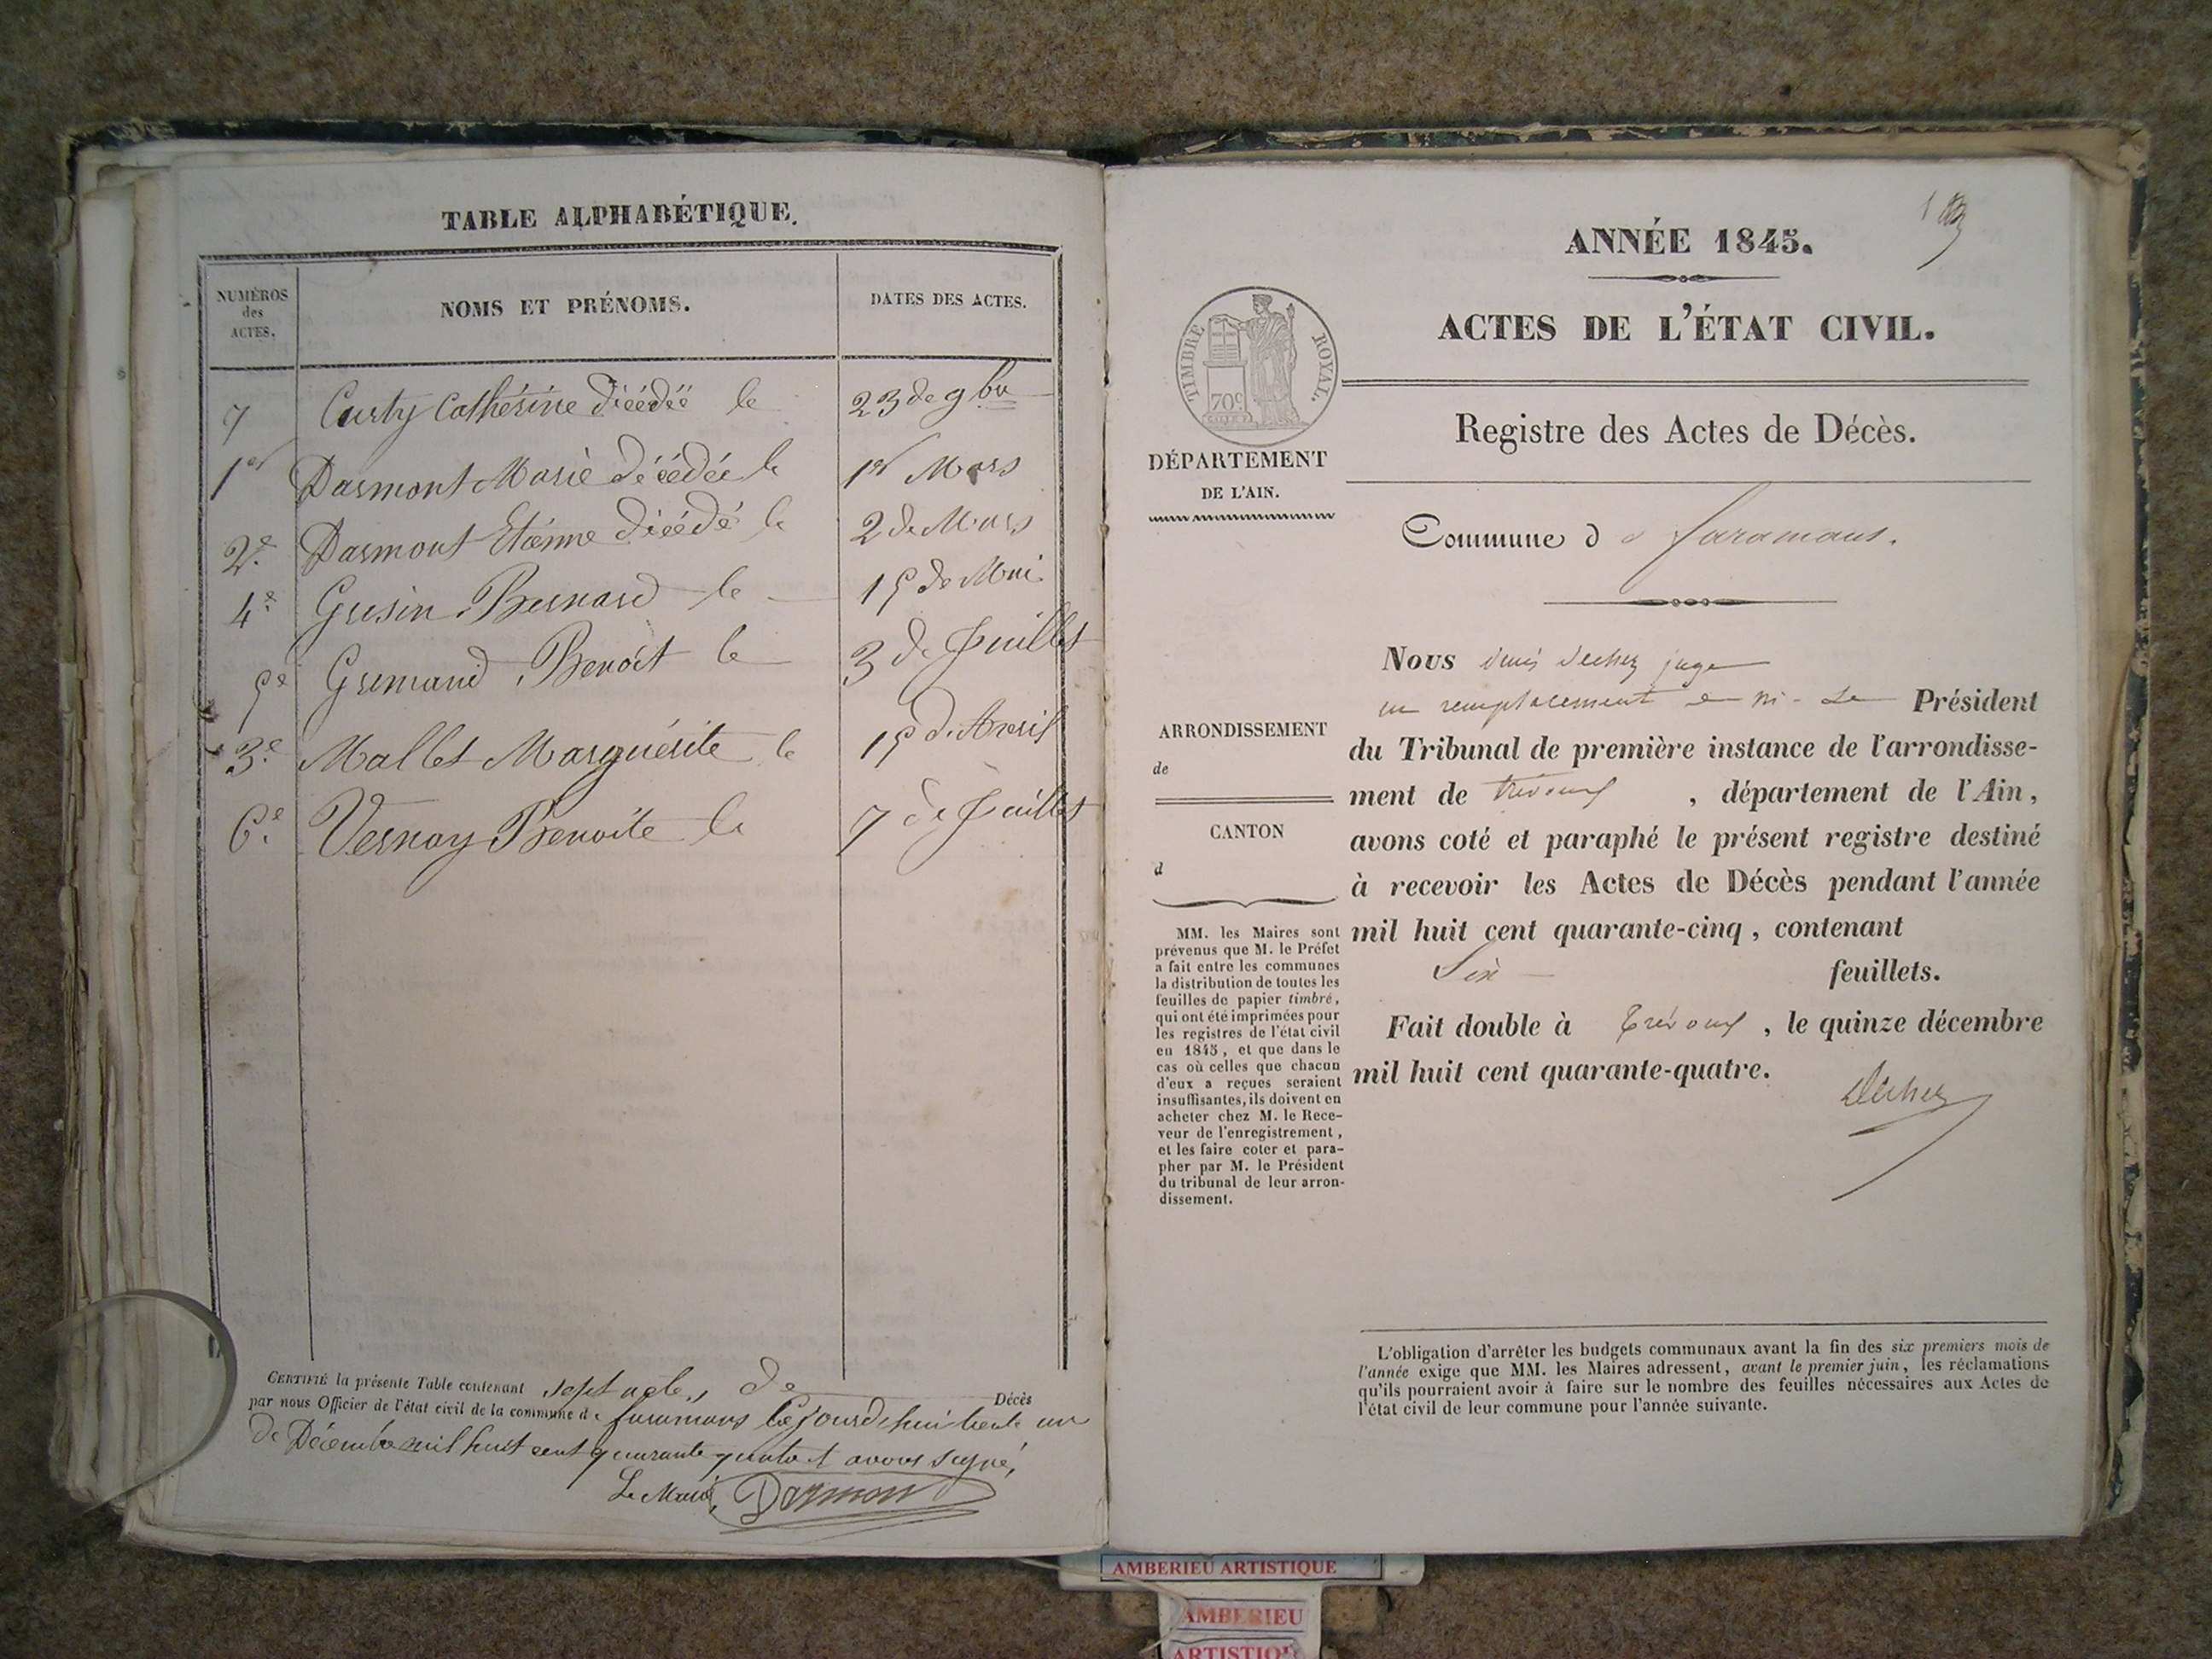 TABLE ALPHABÉTIQUE.
NUMÉROS
des
ACTES.
NOMS ET PRÉNOMS.
DATES DES ACTES.
7 Curty Cathérine décédée le 23 de 9bre
1er Darmont Marie décédée le 1er Mars
2e Darmont Etienne décédé le 2 de Mars
4e Gresin Bernard le 15 de Mai
5e Gremand Benoit le 3 de Juillet
3e Mallet Marguérite le 15 d'Avril
6e Vernay Benoite le 7 de Juillet
CERTIFIÉ la présente Table contenant sept actes de Décès
par nous Officier de l'état civil de la commune de faramans Cejourd'hui trente un
de Décembre mil huit cent quarante quatre et avons signé,
Le Maire, Darmont
ANNÉE 1845.
ACTES DE L'ÉTAT CIVIL.
TIMBRE ROYAL.
70c
Registre des Actes de Décès.
DÉPARTEMENT
DE L'AIN.
Commune d e faramans.
Nous Denis Dechez juge
en remplacement de M. le Président
du Tribunal de première instance de l'arrondisse-
ment de trévoux , département de l'Ain,
avons coté et paraphé le présent registre destiné
à recevoir les Actes de Décès pendant l'année
mil huit cent quarante-cinq, contenant
Six feuillets.
Fait double à trévoux , le quinze décembre
mil huit cent quarante-quatre.
Dechez
ARRONDISSEMENT
de
CANTON
d
MM. les Maires sont
prévenus que M. le Préfet
a fait entre les communes
la distribution de toutes les
feuilles de papier timbré,
qui ont été imprimées pour
les registres de l'état civil
en 1845, et que dans le
cas où celles que chacun
d'eux a reçues seraient
insuffisantes, ils doivent en
acheter chez M. le Rece-
veur de l'enregistrement,
et les faire coter et para-
pher par M. le Président
du tribunal de leur arron-
dissement.
L'obligation d'arrêter les budgets communaux avant la fin des six premiers mois de
l'année exige que MM. les Maires adressent, avant le premier juin, les réclamations
qu'ils pourraient avoir à faire sur le nombre des feuilles nécessaires aux Actes de
l'état civil de leur commune pour l'année suivante.
AMBERIEU ARTISTIQUE
AMBERIEU
ARTISTIQUE